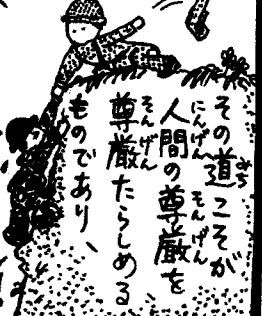 その道こそが
人間の尊厳を
尊厳たらしめる
ものであり、